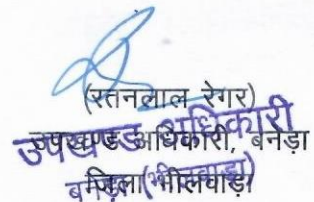 (रतनलाल रेगर)
उपखण्ड अधिकारी, बनेड़ा
जिला भीलवाड़ा
उपखण्ड अधिकारी
(भीलवाड़ा)